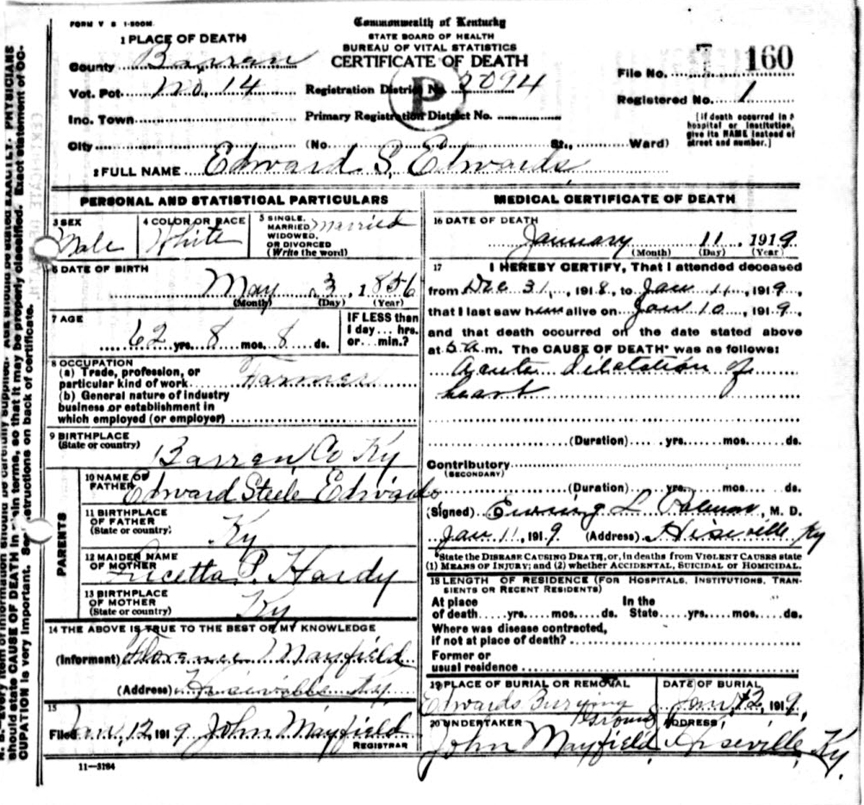 FORM V S 1-500M.
Commonwealth of Kentucky
STATE BOARD OF HEALTH
BUREAU OF VITAL STATISTICS
CERTIFICATE OF DEATH
1 PLACE OF DEATH
County Barren
Vot. Pct. No. 14
Inc. Town
City
Registration District No. 2094
Primary Registration District No.
(No. St., Ward)
P
File No. 160
Registered No. 1
[If death occurred in a hospital or institution, give its NAME instead of street and number.]
2 FULL NAME Edward S. Edwards
PERSONAL AND STATISTICAL PARTICULARS
3 SEX Male
4 COLOR OR RACE White
5 SINGLE, MARRIED, WIDOWED, OR DIVORCED (Write the word) Married
6 DATE OF BIRTH
May 3, 1856
(Month) (Day) (Year)
7 AGE
62 yrs. 8 mos. 8 ds.
IF LESS than 1 day... hrs. or... min.?
8 OCCUPATION
(a) Trade, profession, or particular kind of work Farmer
(b) General nature of industry business or establishment in which employed (or employer)
9 BIRTHPLACE
(State or country) Barren Co Ky
PARENTS
10 NAME OF FATHER Edward Steele Edwards
11 BIRTHPLACE OF FATHER (State or country) Ky
12 MAIDEN NAME OF MOTHER P. Hardy
13 BIRTHPLACE OF MOTHER (State or country) Ky
14 THE ABOVE IS TRUE TO THE BEST OF MY KNOWLEDGE
(Informant) Florence Mayfield
(Address) Hiseville Ky.
15
Filed Jan. 12, 1919 John Mayfield
REGISTRAR
11-3184
MEDICAL CERTIFICATE OF DEATH
16 DATE OF DEATH
January 11, 1919
(Month) (Day) (Year)
17 I HEREBY CERTIFY, That I attended deceased
from Dec 31, 1918, to Jan 11, 1919,
that I last saw him alive on Jan 10, 1919,
and that death occurred on the date stated above
at 5 a.m. The CAUSE OF DEATH* was as follows:
Acute Dilatation of
heart
(Duration) yrs. mos. ds.
Contributory
(SECONDARY)
(Duration) yrs. mos. ds.
(Signed) L. M. D.
Jan 11, 1919 (Address) Hiseville, Ky
*State the DISEASE CAUSING DEATH, or, in deaths from VIOLENT CAUSES state (1) MEANS OF INJURY; and (2) whether ACCIDENTAL, SUICIDAL or HOMICIDAL.
18 LENGTH OF RESIDENCE (FOR HOSPITALS, INSTITUTIONS, TRANSIENTS OR RECENT RESIDENTS)
At place of death yrs. mos. ds. In the State yrs. mos. ds.
Where was disease contracted, if not at place of death?
Former or usual residence
19 PLACE OF BURIAL OR REMOVAL
Edwards Burying Ground
DATE OF BURIAL
Jan. 12, 1919
20 UNDERTAKER
John Mayfield
ADDRESS
Hiseville, Ky.